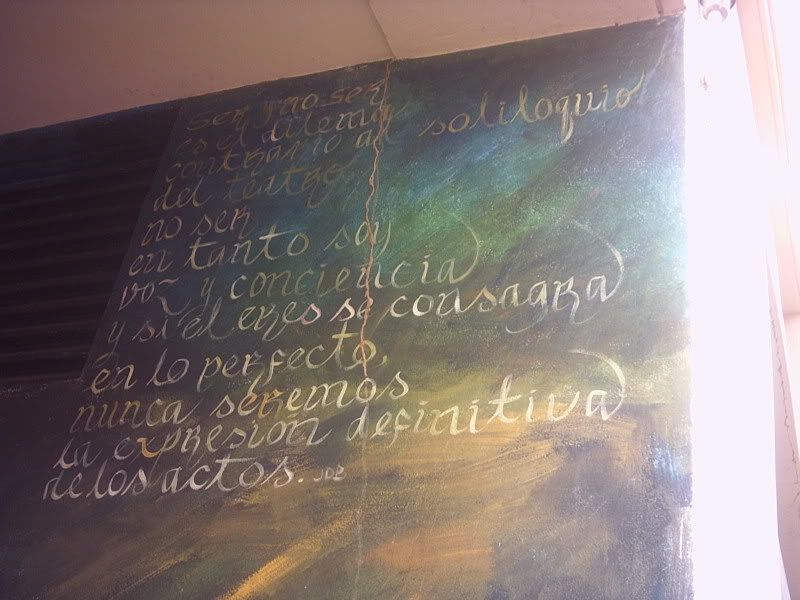 ser y no ser
es el dilema
contrario al soliloquio
del teatro,
no ser
en tanto soy
voz y conciencia
y si el eres se consagra
en lo perfecto,
nunca seremos
la expresión definitiva
de los actos.